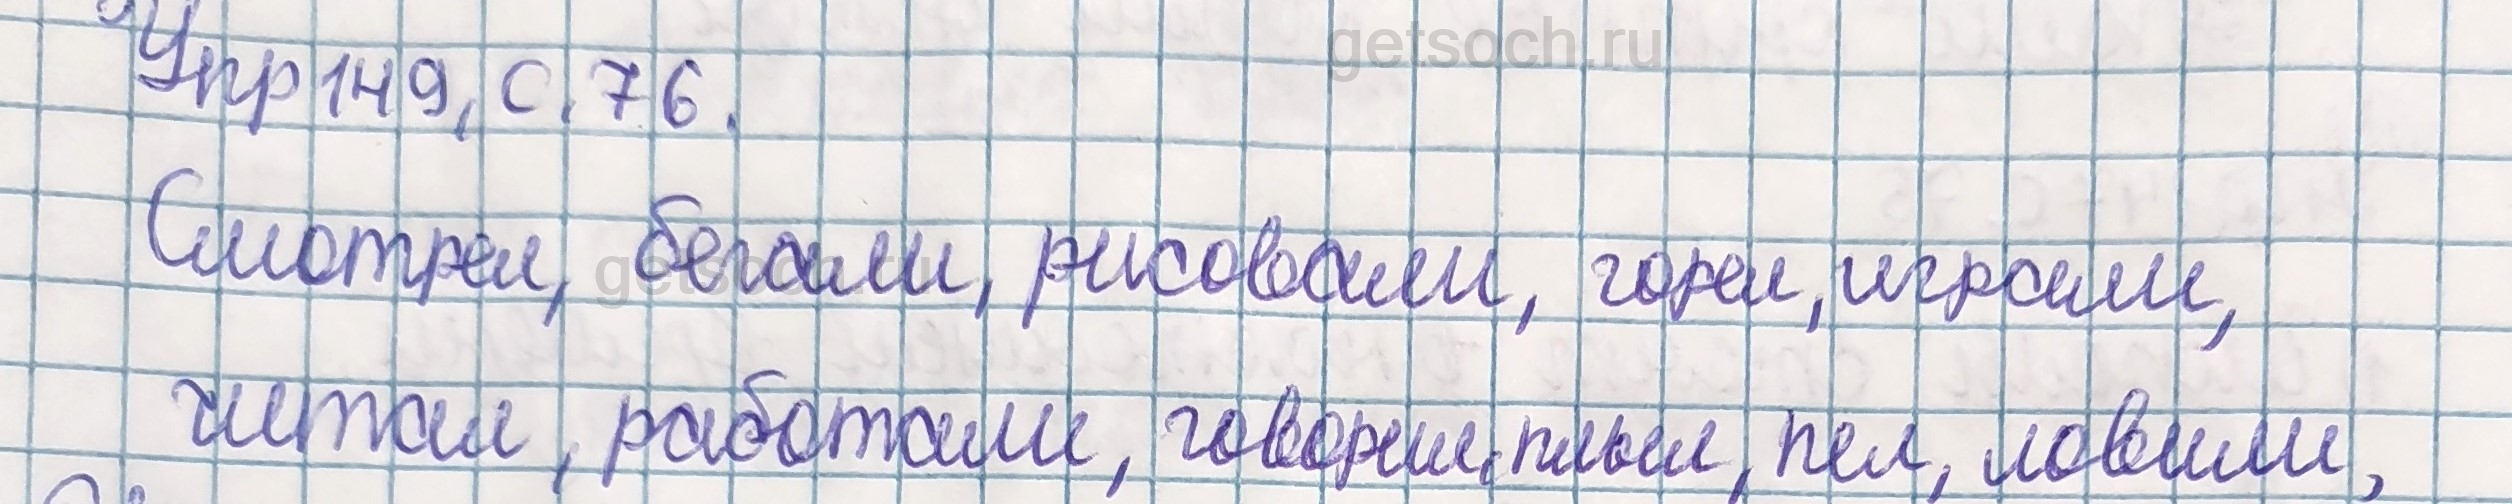 getsoch.ru
Упр 149, с. 76.
Смотрел, бегали, рисовали, горел, играли,
getsoch.ru
читал, работали, говорил, плыл, пел, ловили,